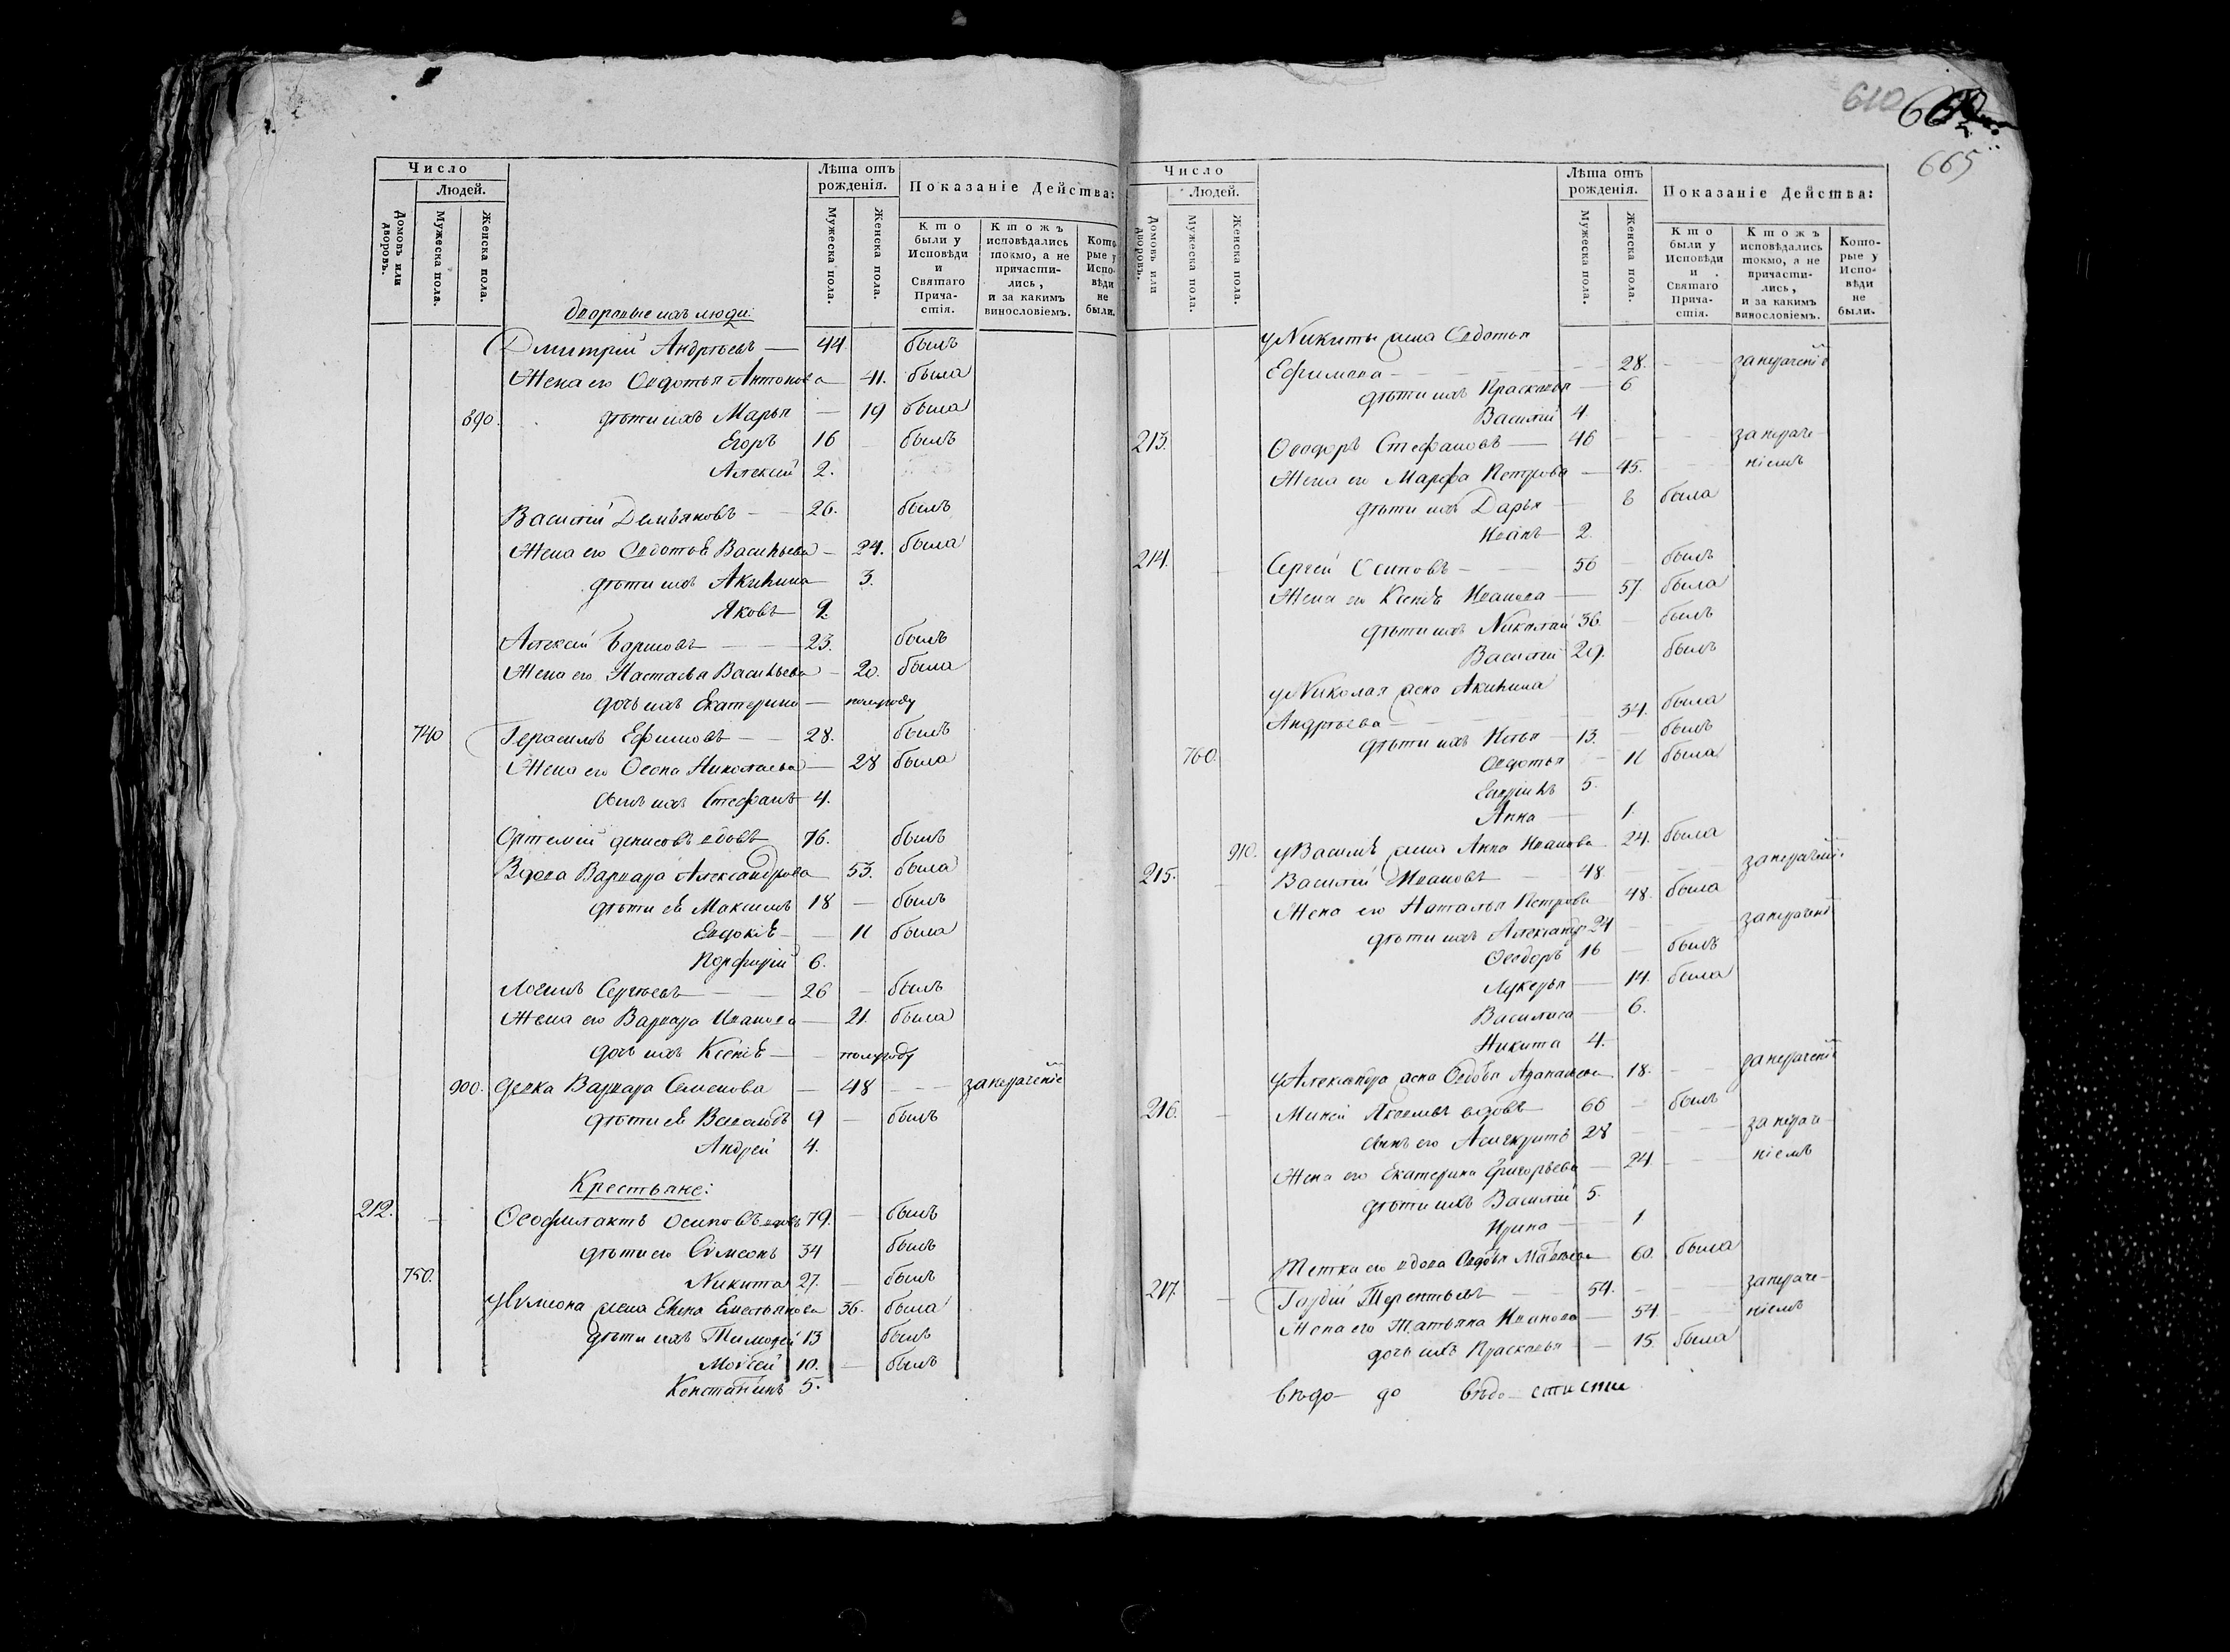 Число
Людей.
Домовъ или дворовъ.
Мужеска пола.
Женска пола.
Лѣта отъ рожденія.
Мужеска пола.
Женска пола.
Показаніе Действа:
Кто были у Исповѣди и Святаго Прича-стія.
Ктожъ исповѣдались токмо, а не причасти-лись, и за какимъ винословіемъ.
Кото-рые у Испо-вѣди не были.
дворовые ихъ люди:
Дмитрій Андрѣевъ — 44. былъ
Жена его Овдотья Антонова — 41. была
890. дѣти ихъ Марья — 19 была
Егоръ 16 былъ
Алексѣй 2.
Василій Демьяновъ — 26. былъ
Жена его Овдотья Васильева — 24. была
дѣти ихъ Акилина 3.
Яковъ — 2
Алексѣй Борисовъ — 23. былъ
Жена его Настасья Васильева — 20. была
дочь ихъ Екатерина — полугоду
740 Герасимъ Ефимовъ — 28. былъ
Жена его Николаева — 28 была
сынъ ихъ Стефанъ 4.
Ортемій денисовъ вдовъ 76. былъ
Вдова Варвара Александрова 53. была
дѣти ея Максимъ 18 — былъ
Евдокія — 11 была
Порфирій 6.
Логинъ Сергѣевъ — 26 — былъ
Жена его Варвара Иванова — 21. была
дочь ихъ Ксенія — полугоду
900. девка Варвара Семенова — 48 — занерачение
дѣти ея Всеволодъ 9 — былъ
Андрей 4.
Крестьяне:
212. — Ѳеофилактъ Осиповъ вдовъ 79. — былъ
дѣти его Сѵмеонъ 34 былъ
750. Никита 27. — былъ
у Сѵмеона жена Елена Емельянова 36. была
дѣти ихъ Тимоѳей 13 былъ
Моисей 10. — былъ
Константинъ 5.
610
665
Число
Людей.
Домовъ или дворовъ.
Мужеска пола.
Женска пола.
Лѣта отъ рожденія.
Мужеска пола.
Женска пола.
Показаніе Действа:
Кто были у Исповѣди и Святаго Прича-стія.
Ктожъ исповѣдались токмо, а не причасти-лись, и за какимъ винословіемъ.
Кото-рые у Испо-вѣди не были.
у Никиты жена Овдотья
Ефимова — 28. — занерачение
дѣти ихъ Прасковья — 6
Василій 4.
213. Ѳеодоръ Стефановъ — 46 — занераче-
Жена его Марфа Петрова — 45. — ніемъ
дѣти ихъ Дарья — 8 была
Иванъ — 2.
214. — Сергей Осиповъ — 56 — былъ
Жена его Ксенія Иванова — 57. была
дѣти ихъ Николай 36. — былъ
Василій 29. былъ
у Николая жена Акилина
Андрѣева — 34. была
дѣти ихъ Илья — 13. — былъ
760. Овдотья — 11 была
5.
Анна — 1.
910. у Василія жена Анна Иванова 24. была
215. — Василій Ивановъ — 48 — занерачение
Жена его Наталья Петрова 48. была
дѣти ихъ Александръ 24 — занерачение
Ѳеодоръ 16 — былъ
Лукерья — 14. была
Василиса — 6.
Никита 4.
у Александра жена Овдотья 18. — занерачение
216. — Миней Яковлевъ вдовъ — 66 — былъ
сынъ его Асинкритъ 28 — занерач-
Жена его Екатерина Григорьева — 24. — ніемъ
дѣти ихъ Василій 5.
Ирина — 1
Тетка его вдова Овдотья 60. была
217. — Гордій Терентьевъ — 54. — занераче-
Жена его Татьяна Иванова — 54. — ніемъ
дочь ихъ Прасковья — 15. была
вѣдо- до вѣдо- сти сти